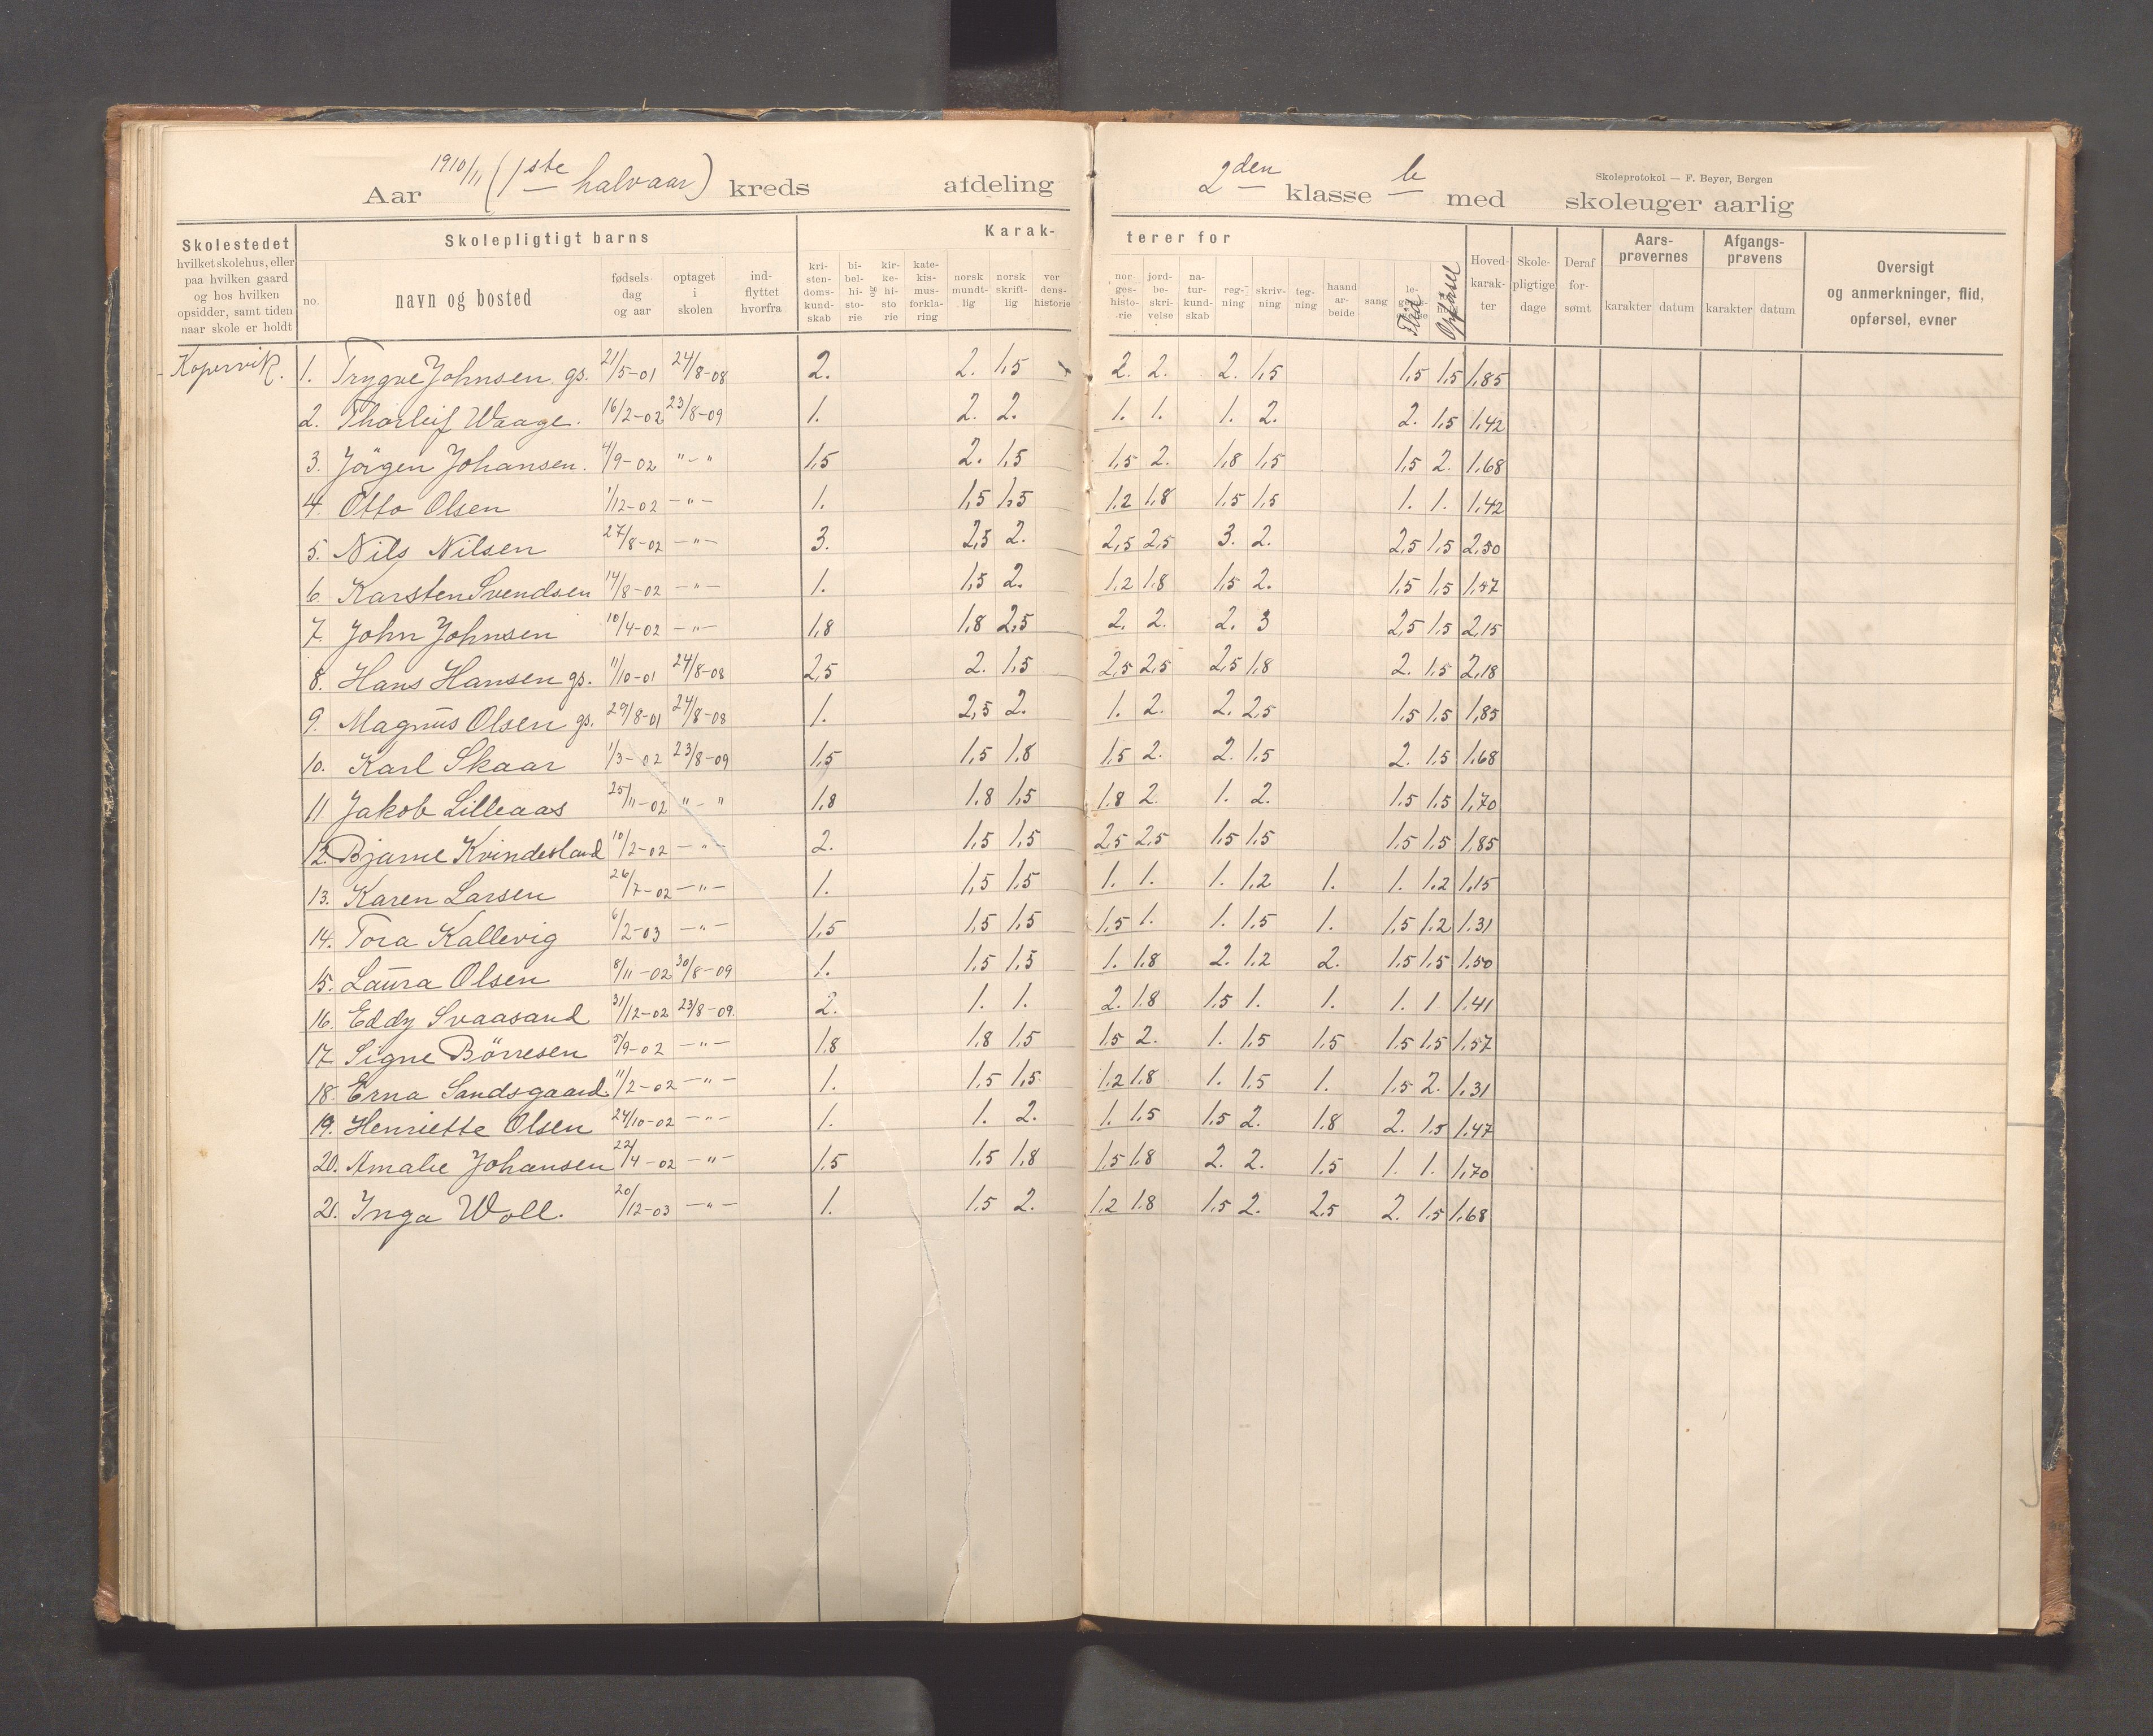 Aar 1910/11 (1ste halvaar) kreds afdeling 2den klasse b med skoleuger aarlig
Skoleprotokol — F. Beyer, Bergen
Skolestedet hvilket skolehus, eller paa hvilken gaard og hos hvilken opsidder, samt tiden naar skole er holdt
Skolepligtigt barns
no.
navn og bosted
fødsels- dag og aar
optaget i skolen
ind- flyttet hvorfra
Karak- terer for
kri- sten- doms- kund- skab
bi- bel- hi- sto- rie
kir- ke- hi- sto rie
og
kate- kis- mus- forkla- ring
norsk mundt- lig
norsk skrift- lig
ver dens- historie
nor- ges- histo- rie
jord- be- skri- velse
na- tur- kund- skab
reg- ning
skriv- ning
teg- ning
haand ar- beide
sang
Flid
Opførsel
Hoved- karak- ter
Skole- pligtige dage
Deraf for- sømt
Aars- prøvernes karakter datum
Afgangs- prøvens karakter datum
Oversigt og anmerkninger, flid, opførsel, evner
Kopervik. 1. Trygve Johnsen gs. 21/5-01 24/8-08 2. 2. 1,5 2. 2. 2. 1,5 1,5 1,5 1,85
2. Thorleif Waage. 16/2-02 23/8-09 1. 2. 2. 1. 1. 1. 2. 2. 1,5 1,42
3. Jörgen Johansen. 4/9-02 "-" 1,5 2. 1,5 1,5 2. 1,8 1,5 1,5 2. 1,68
4. Otto Olsen 1/12-02 -"- 1. 1,5 1,5 1,2 1,8 1,5 1,5 1. 1. 1,42
5. Nils Nilsen 27/8-02 -"- 3. 2,5 2. 2,5 2,5 3. 2. 2,5 1,5 2,50
6. Karsten Svendsen 14/8-02 -"- 1. 1,5 2. 1,2 1,8 1,5 2. 1,5 1,5
7. John Johnsen 10/4-02 -"- 1,8 1,8 2,5 2. 2. 2. 3 2,5 1,5 2,15
8. Hans Hansen gs. 11/10-01 24/8-08 2,5 2. 1,5 2,5 2,5 2,5 1,8 2. 1,5 2,18
9. Magnus Olsen gs. 29/8-01 24/8-08 1. 2,5 2. 1. 2. 2. 2,5 1,5 1,5 1,85
10. Karl Skaar 1/3-02 23/8-09 1,5 1,5 1,8 1,5 2. 2. 1,5 2. 1,5 1,68
11 Jakob Lilleaas 25/11-02 "-" 1,8 1,8 1,5 1,8 2. 1. 2. 1,5 1,5 1,70
12. Bjarne Kvindesland 10/2-02 -"- 2. 1,5 1,5 2,5 2,5 1,5 1,5 1,5 1,5 1,85
13. Karen Larsen 26/7-02 -"- 1. 1,5 1,5 1. 1. 1. 1,2 1. 1. 1,2 1,15
14. Tora Kallevig 6/2-03 -"- 1,5 1,5 1,5 1,5 1. 1. 1,5 1. 1,5 1,2 1,31
15. Laura Olsen 8/11-02 30/8-09 1. 1,5 1,5 1. 1,8 2. 1,2 2. 1,5 1,5 1,50
16. Eddy Svaasand 31/12-02 23/8-09. 2. 1. 1. 2. 1,8 1,5 1. 1. 1. 1 1,41
17. Signe Börresen 5/9-02 -"- 1,8 1,8 1,5 1,5 2. 1. 1,5 1,5 1,5 1,5 1,57
18. Erna Sandsgaard. 11/2-02 -"- 1. 1,5 1,5 1,2 1,8 1. 1,5 1. 1,5 2. 1,31
19. Henriette Olsen 24/10-02 -"- 1. 1. 2. 1. 1,5 1,5 2. 1,8 2. 1,5 1,47
20. Amalie Johansen 22/4-02 -"- 1,5 1,5 1,8 1,5 1,8 2. 2. 1,5 1. 1. 1,70
21. Inga Woll. 20/12-03 -"- 1. 1,5 2. 1,2 1,8 1,5 2. 2,5 2. 1,5 1,68